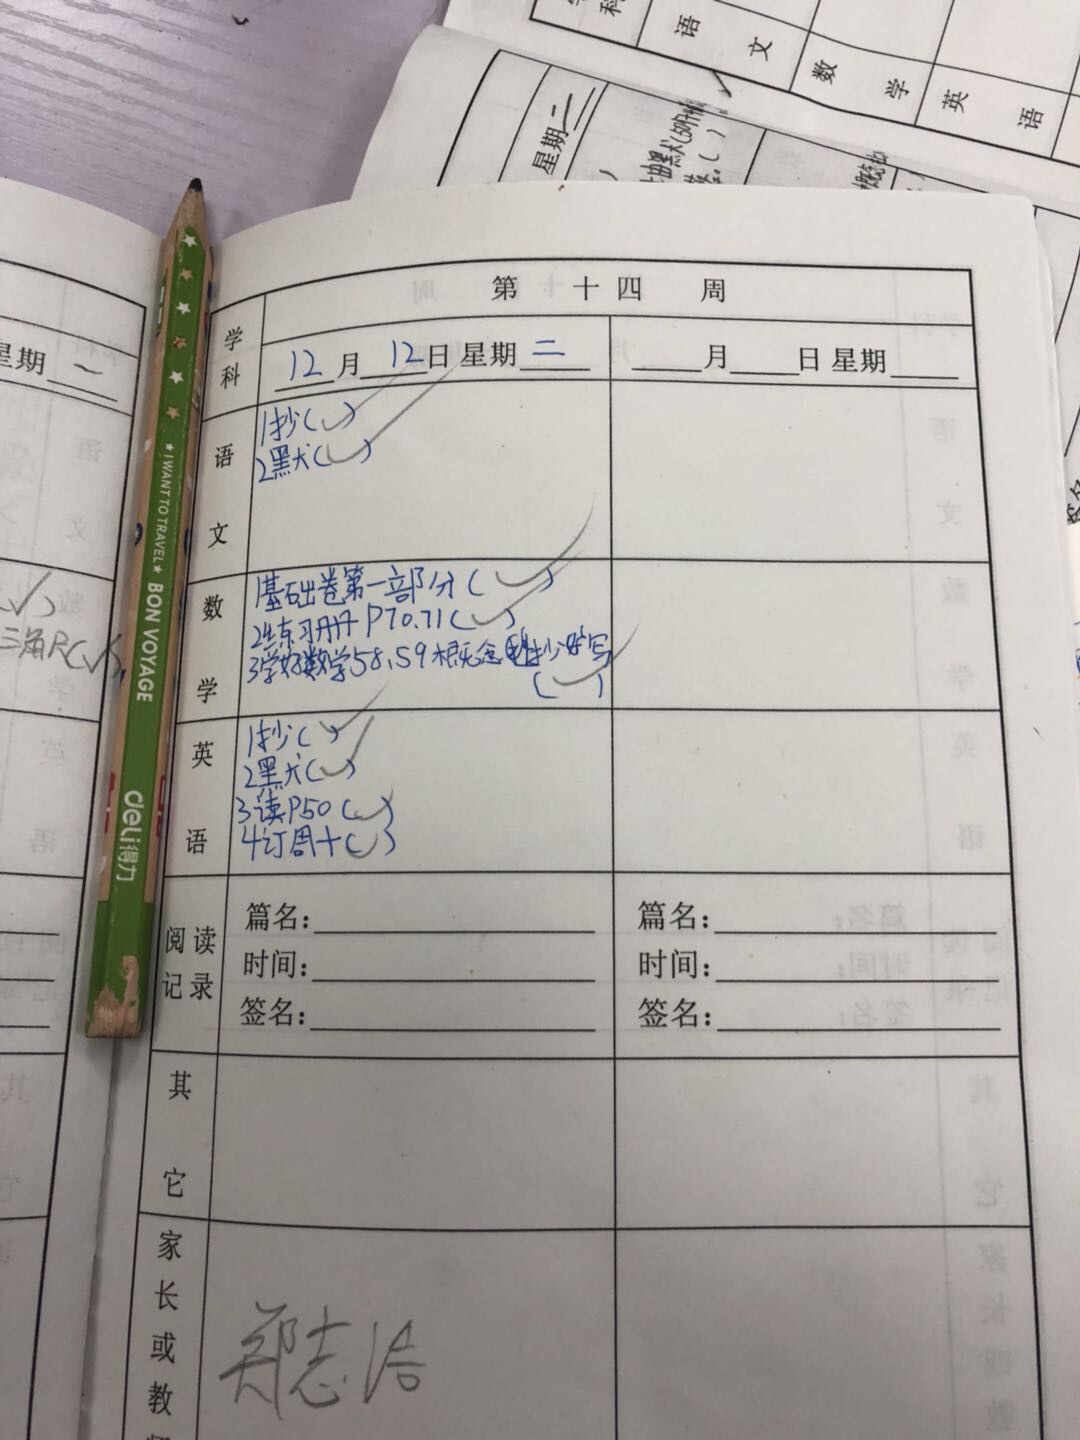 学科
语文
数学
英语
星期二
星期一
三角尺(✓)
I WANT TO TRAVEL
BON VOYAGE
deli得力
第十四周
学科
12月12日星期二
月 日星期
语文
1抄(✓)
2黑犬(✓)
数学
1基础卷第一部分(✓)
2练习册P70.71(✓)
3学好数学58、59概念抄写
(✓)
英语
1抄(✓)
2黑犬(✓)
3读P50(✓)
4订周十(✓)
阅读记录
篇名：
时间：
签名：
篇名：
时间：
签名：
其它
家长或教
郑志浩